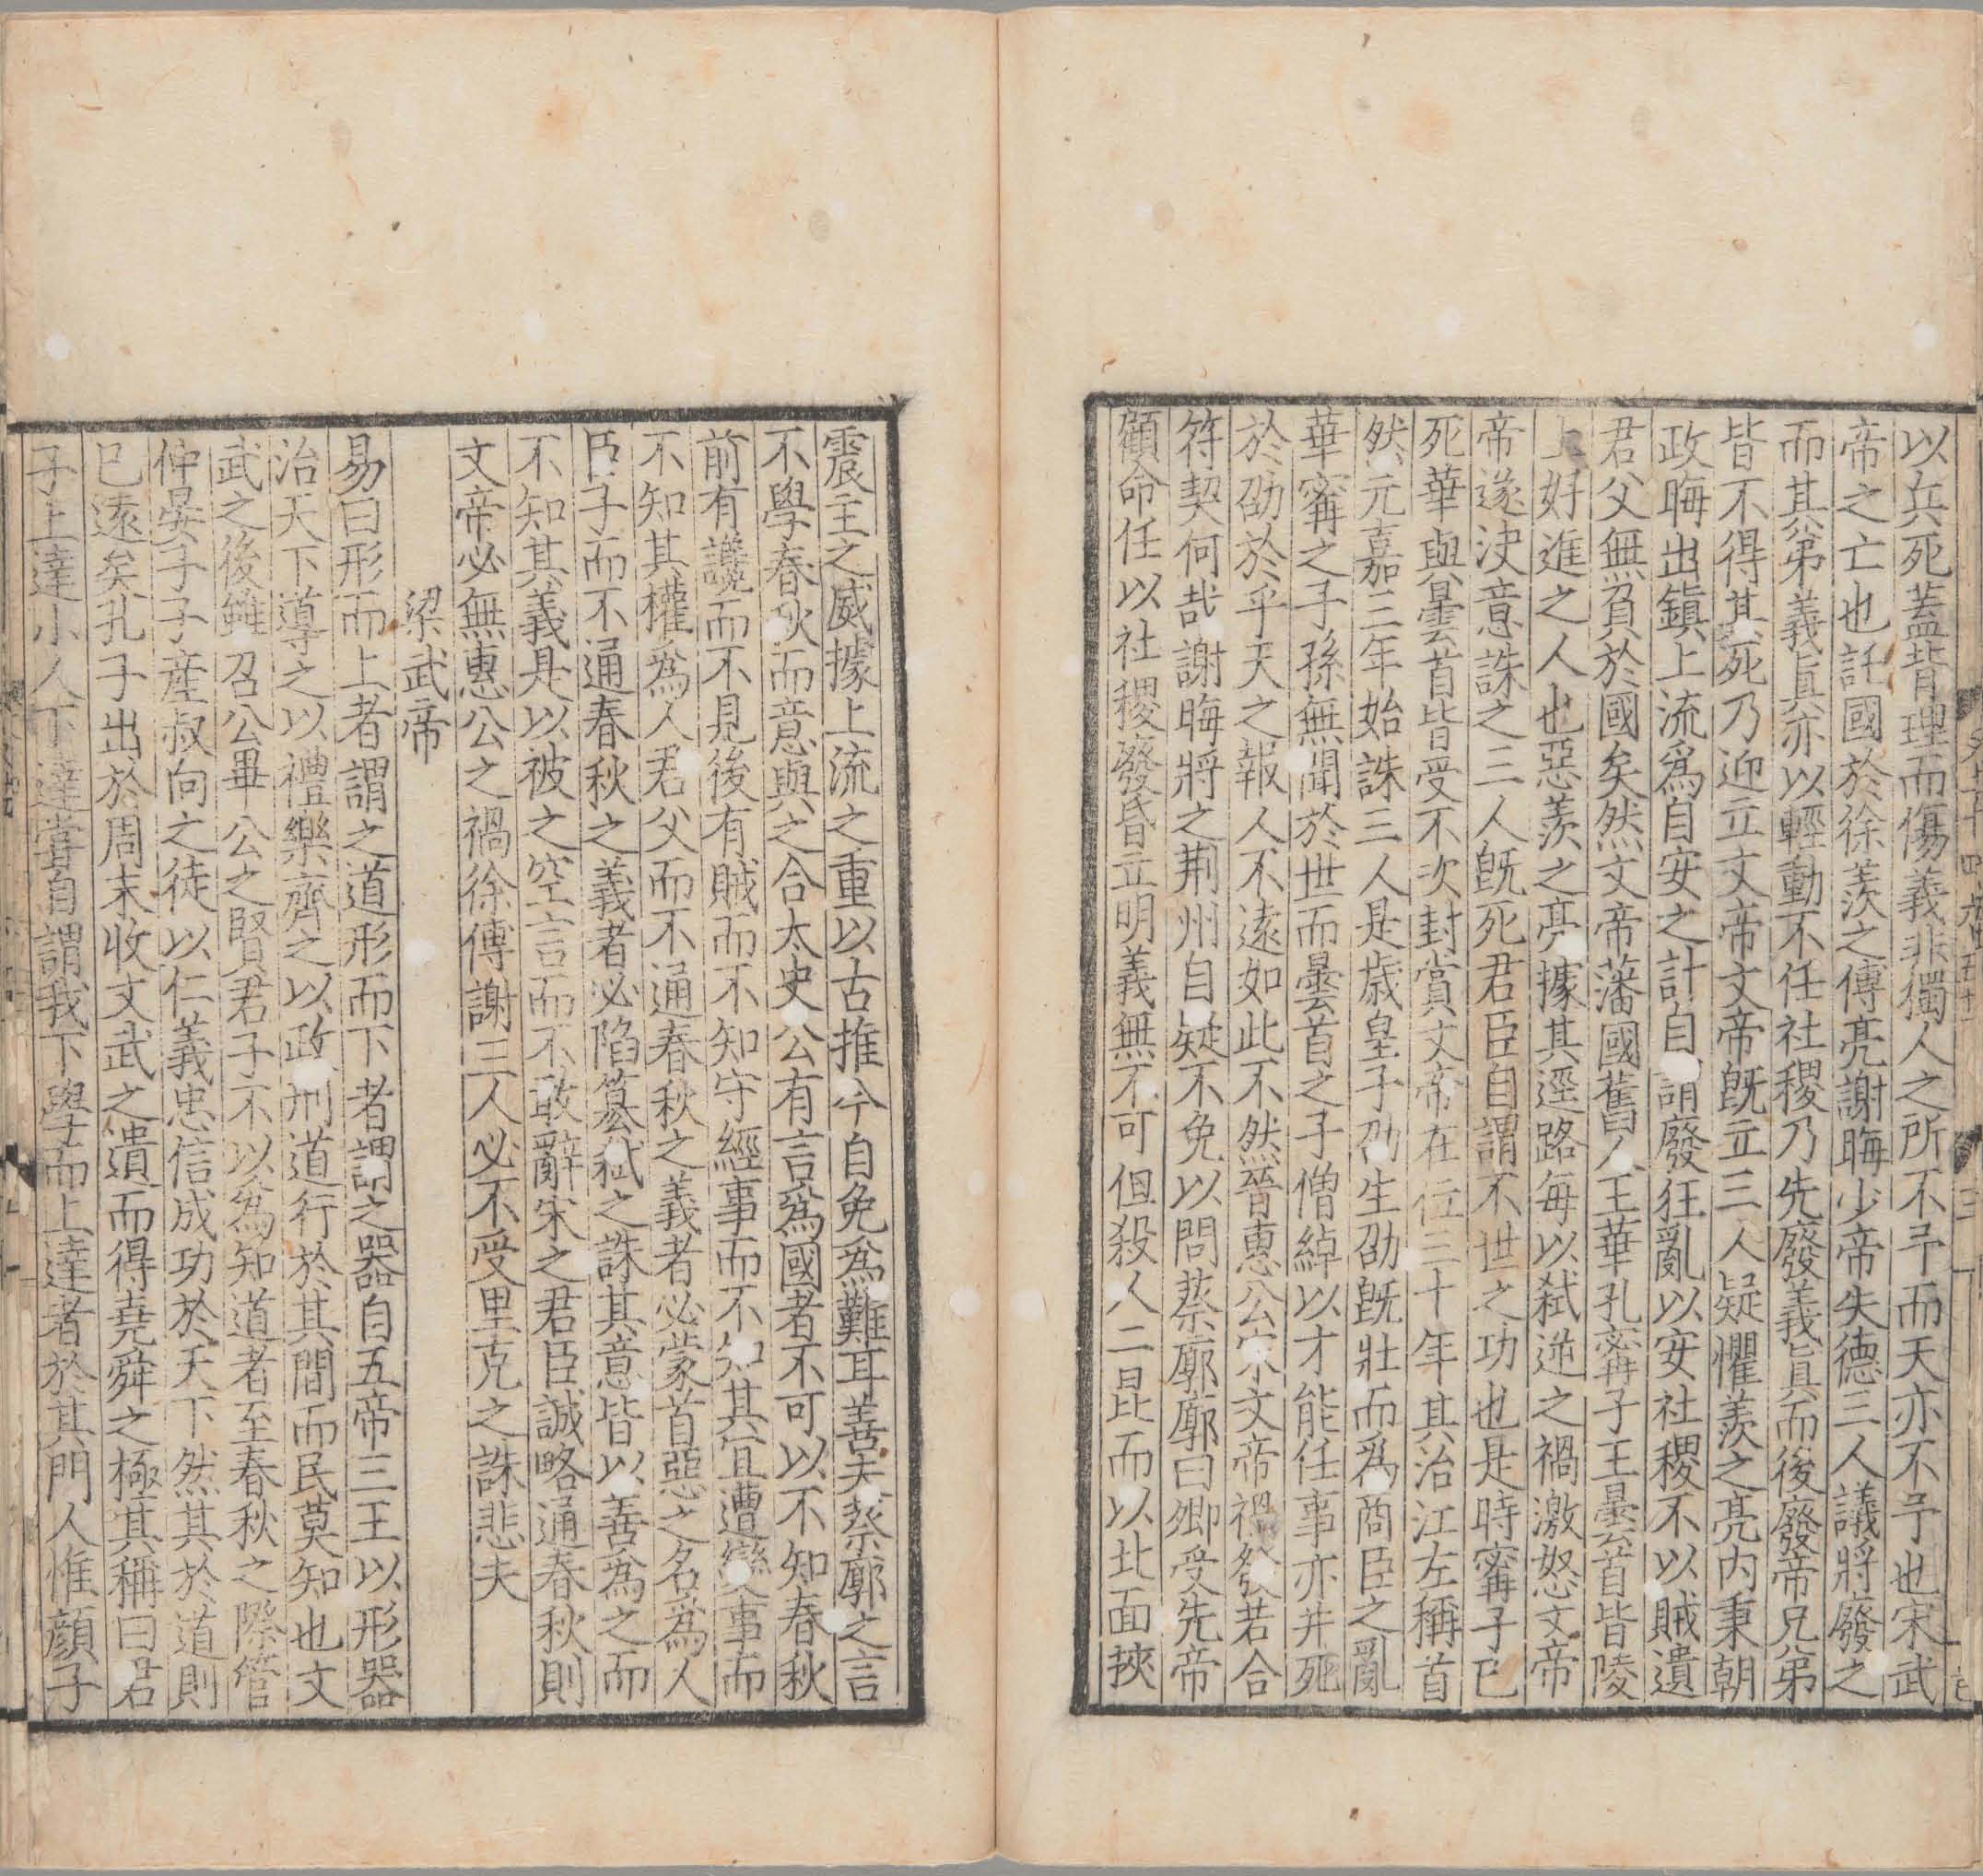 以兵死蓋背理而傷義非獨人之所不予而天亦不予也宋武
帝之亡也託國於徐羨之傅亮謝晦少帝失德三人議將廢之
而其弟義真亦以輕動不任社稷乃先廢義真而後廢帝兄弟
皆不得其死乃迎立文帝文帝既立三人疑懼羨之亮内秉朝
政晦出鎮上流爲自安之計自謂廢狂亂以安社稷不以賊遺
君父無負於國矣然文帝藩國舊人王華孔寗子王曇首皆陵
上好進之人也惡羨之亮據其逕路每以弑逆之禍激怒文帝
帝遂決意誅之三人既死君臣自謂不世之功也是時寗子已
死華與曇首皆受不次封賞文帝在位三十年其治江左稱首
然元嘉三年始誅三人是歳皇子劭生劭既壯而爲商臣之亂
華寗之子孫無聞於世而曇首之子僧綽以才能任事亦并死
於劭於乎天之報人不遠如此不然晉惠公宋文帝禍發若合
符契何哉謝晦將之荆州自疑不免以問蔡廓廓曰卿受先帝
顧命任以社稷廢昏立明義無不可但殺人二昆而以北面挾
震主之威據上流之重以古推今自免爲難耳善夫蔡廓之言
不學春秋而意與之合太史公有言爲國者不可以不知春秋
前有讒而不見後有賊而不知守經事而不知其宜遭變事而
不知其權爲人君父而不通春秋之義者必蒙首惡之名爲人
臣子而不通春秋之義者必陷篡弑之誅其意皆以善爲之而
不知其義是以被之空言而不敢辭宋之君臣誠略通春秋則
文帝必無惠公之禍徐傅謝三人必不受里克之誅悲夫
梁武帝
易曰形而上者謂之道形而下者謂之器自五帝三王以形器
治天下導之以禮樂齊之以政刑道行於其間而民莫知也文
武之後雖召公畢公之賢君子不以爲知道者至春秋之際管
仲晏子子產叔向之徒以仁義忠信成功於天下然其於道則
已遠矣孔子出於周末收文武之遺而得堯舜之極其稱曰君
子上達小人下達嘗自謂我下學而上達者於其門人惟顔子